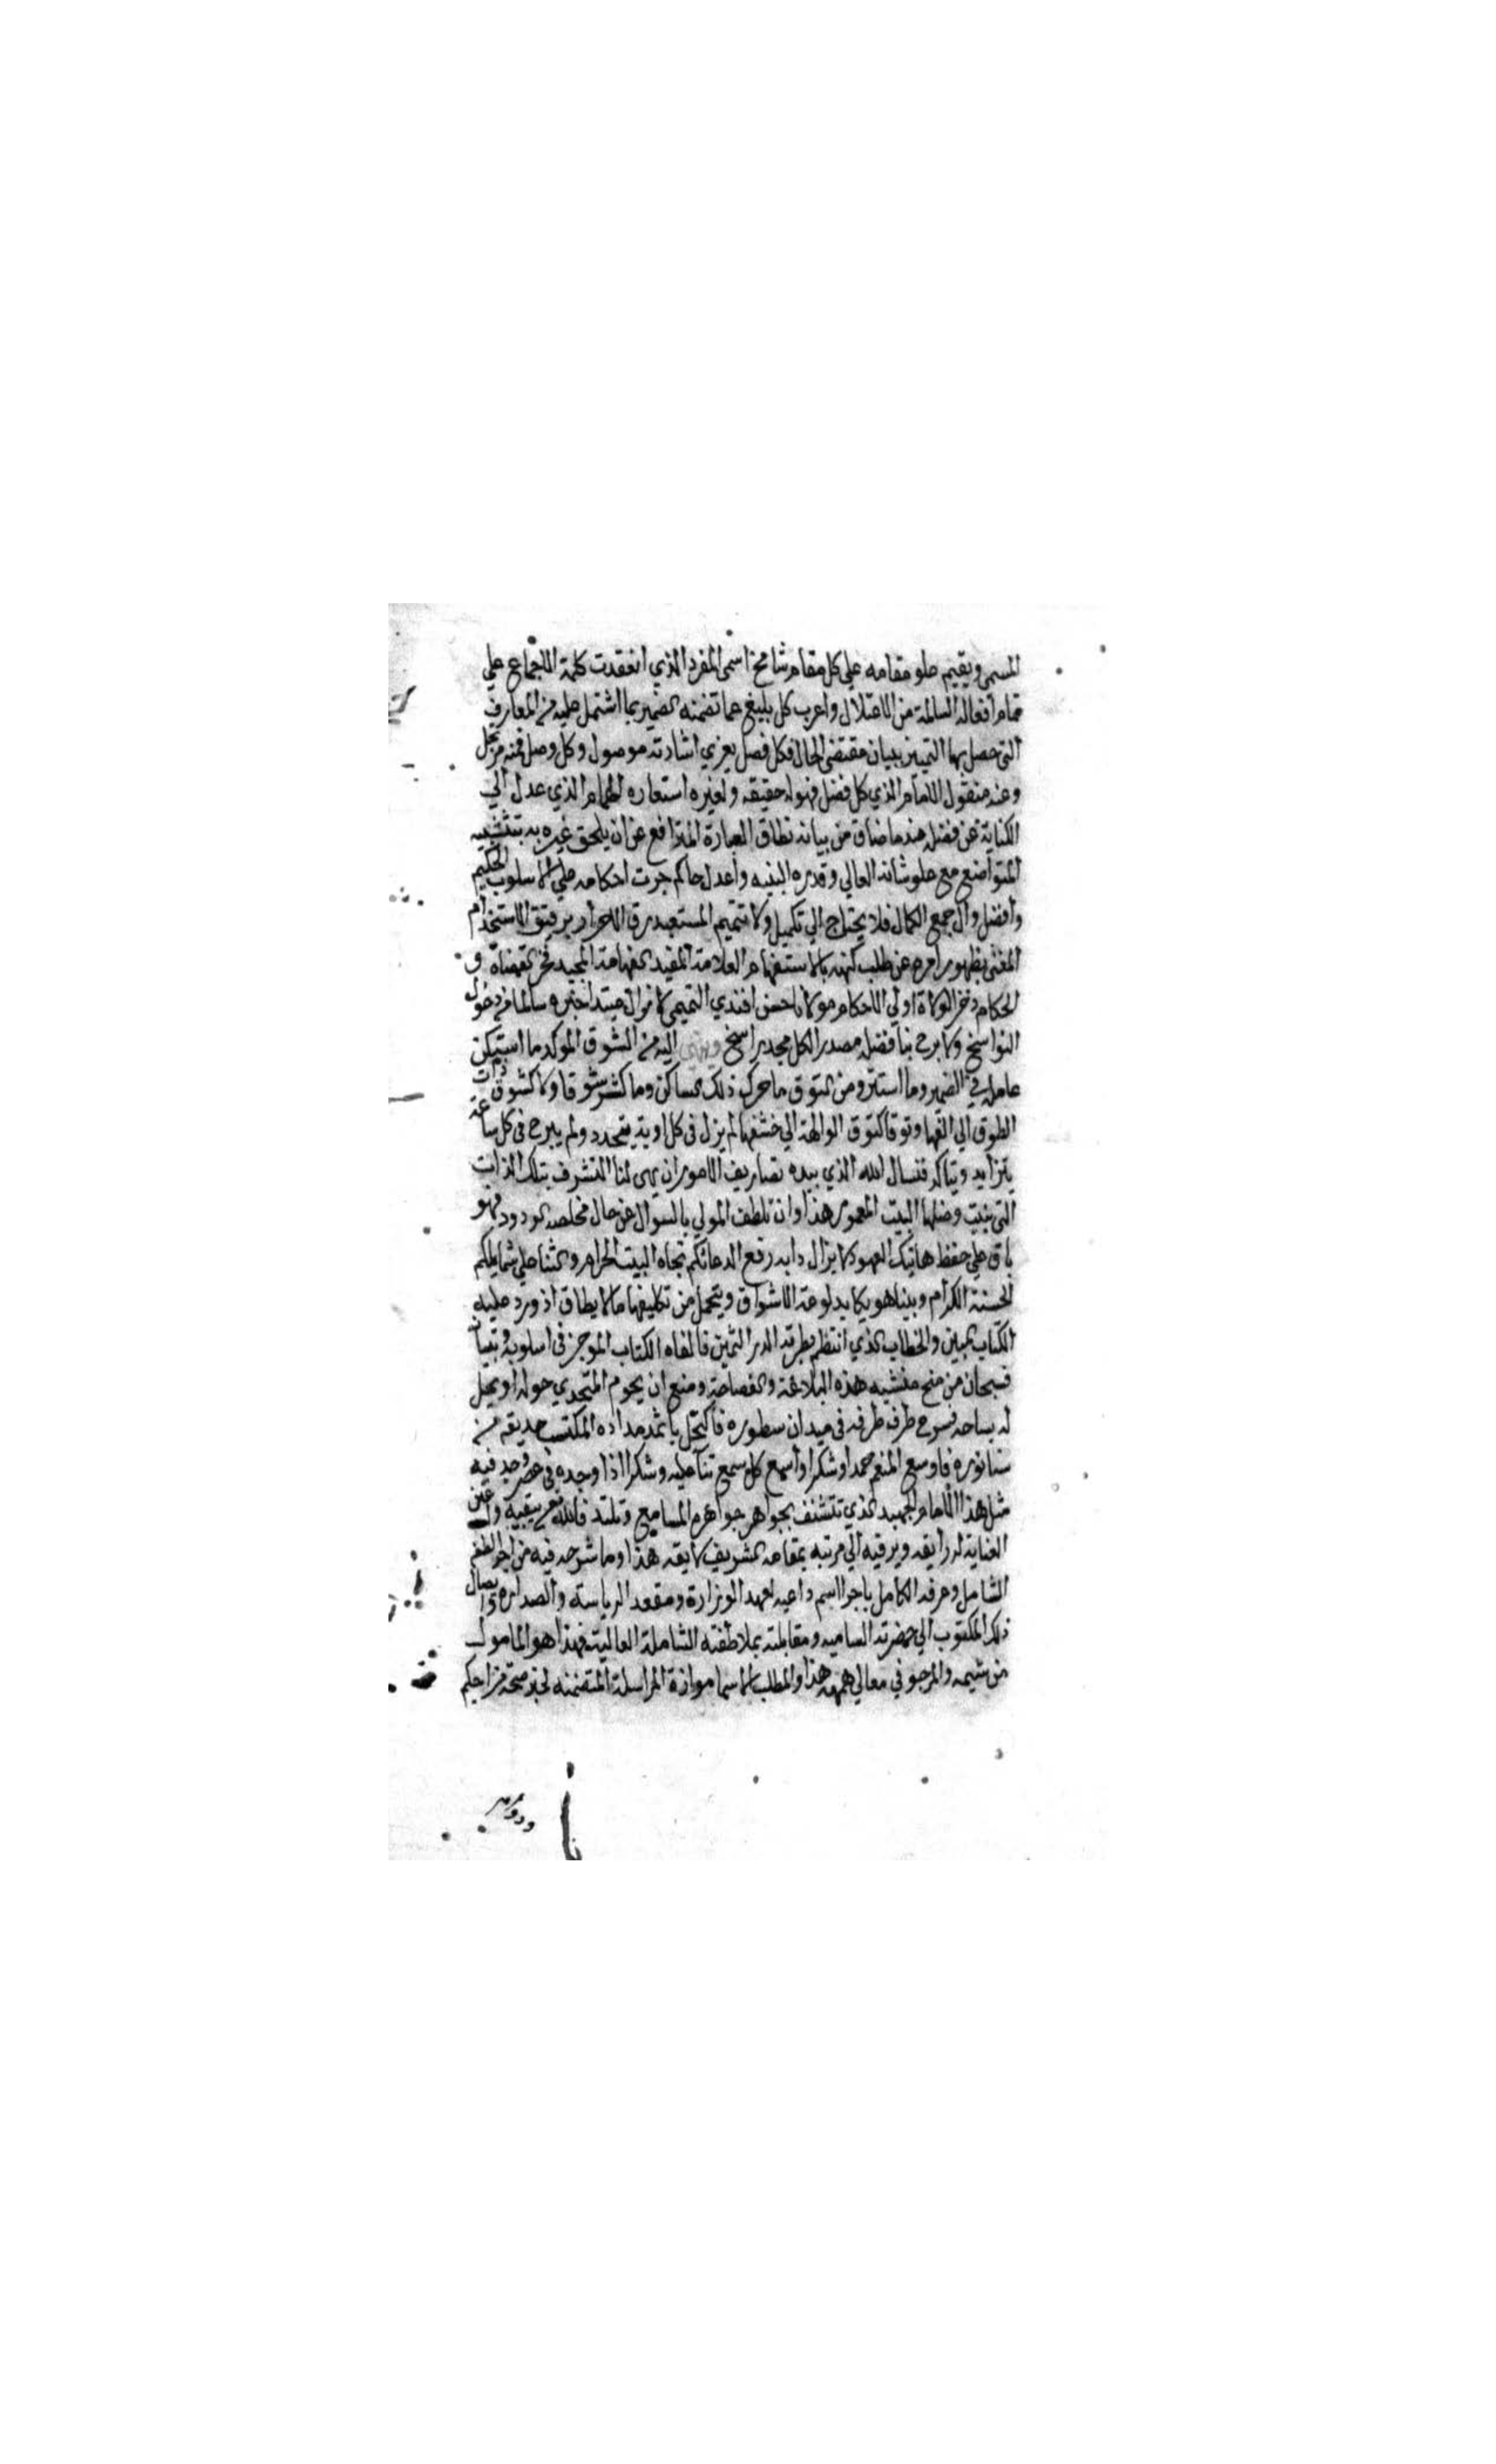 المسمى ويقيم علو مقامه علي كل مقام شامخ اسمى المفرد الذي انعقدت كلمة الاجماع علي
تمام أفعاله السالمة من الاعتلال واعرب كل بليغ عما تضمنه الضمير بما اشتمل عليه من المعارف
التى حصل بها التمييز ببيان مقتضى الحال فكل فصل يعزي اشارته موصول وكل وصل فمنه
وعنه منقول الامام الذي كل فضل فهو له حقيقه ولغيره استعاره الهمام الذي عدل الي
الكناية عن فضله عند ما ضاق من بيانه نطاق العبارة المترافع عن ان يلحق غيره به بتشبيه
المتواضع مع علو شانه العالي وقدره النبيه وأعدل حاكم جرت احكامه علي الاسلوب الحكيم
وأفضل وال جمع الكمال فلا يحتاج الي تكميل ولا تتميم المستعبد رق الاحرار برقيق الاستخدام
المغنى بظهور امره عن طلب كنهه بالاستفهام العلامة المفيد الفهامة المجيد فخر القضاة و
الحكام ذخر الولاة اولي الاحكام مولانا حسن افندي التميمي لا زال مبتدا خبره سالما من دخول
النواسخ ولا برح بنا فضله مصدر الكل مجد راسخ وينهى اليه من الشوق الموكد ما استكن
عامله في الضمير وما استتر ومن التوق ما حرك ذلك الساكن وما كشر شوقا ولا كشوق ذات
الطوق الي الفها وتوقا كتوق الوالهة الي خشفها لم يزل في كل اوبة يتجدد ولم يبرح في كل ساعة
يتزايد ويتاكد فنسال الله الذي بيده تصاريف الامور ان يهي لنا التشرف بتلك الذات
التى بنيت وضلها البيت المعمور هذا وان تلطف المولي بالسوال عن حال مخلصه الودود فهو
باق علي حفظ هاتيك العهود لا يزال دابه رفع الدعا لكم تجاه البيت الحرام والثنا علي شمايلكم
الحسنة الكرام وبينا هو يكابد لوعة الاشواق ويتحمل من تكليفها ما لا يطاق اذ ورد عليه
الكتاب المبين والخطاب الذي انتظم بطرته الدر الثمين فالفاه الكتاب الموجز في اسلوبه وتبيانه
فسبحان من منح منشيه هذه البلاغة والفصاحة ومنع ان يحوم المتحدي حوله او يحل
له بساحه فسرح طرف طرفه في ميدان سطوره فاكتحل باثمد مداده المكتسب حديقه من
سنا نوره فاوسع المنعم حمدا وشكرا وأسمع كل سمع ثنا عليه وشكرا اذا وجده في عصر وجد فيه
مثل هذا الامام الجهبد الذي تتشنف بجواهر جواهره المسامع وتلتذ فالله تعالى يبقيه وعين
العناية له رايقه ويرقيه الي مرتبه بمقامه الشريف لايقه هذا وما شرحه فيه من اجرا لطفه
الشامل وعرفه الكامل باجرا اسم داعيه لعهد الوزارة ومقعد الرياسة والصداره وايصال
ذلك المكتوب الي حضرته الساميه ومقابلته بملاطفته الشاملة العالية فهذا هو المامول
من شيمه والمرجو في معالي هممه هذا والمطلب الاسما موازة المراسلة المتضمنه لخبر صحة مزاجكم